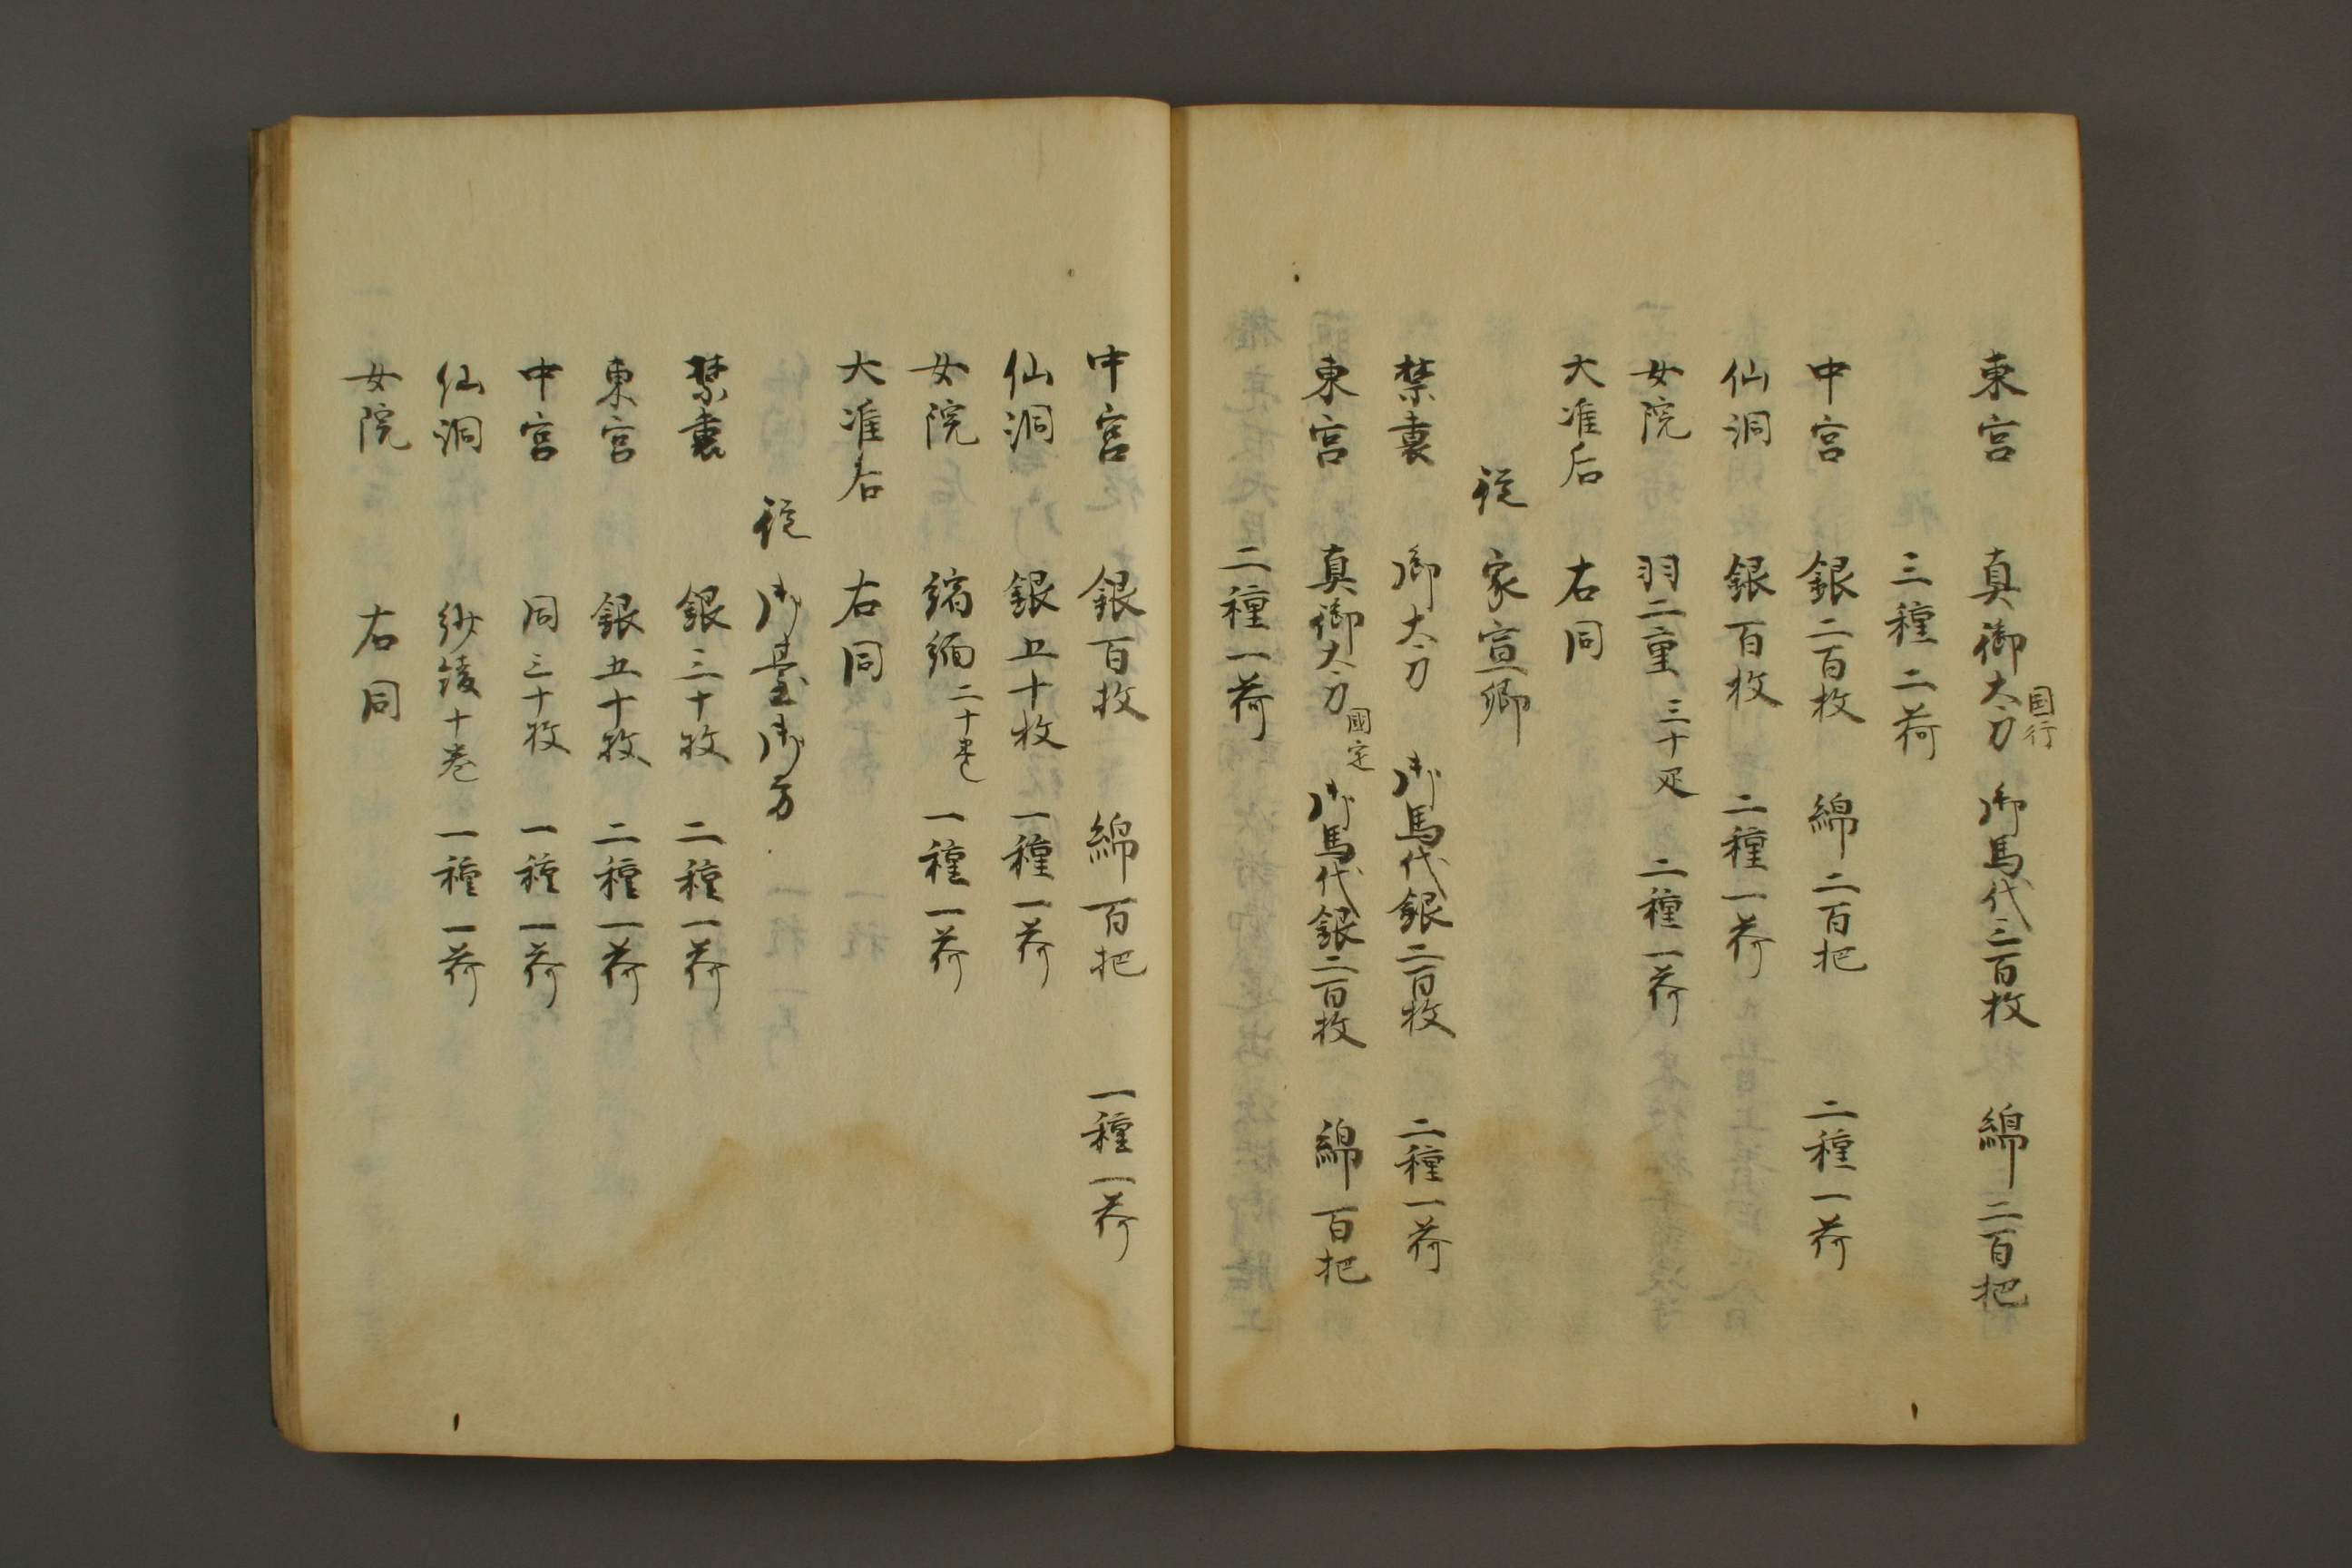 東宮 真御太刀 国行 御馬代二百枚 綿二百把
三種二荷
中宮 銀二百枚 綿二百把 二種一荷
仙洞 銀百枚 二種一荷
女院 羽二重三十疋 二種一荷
大准后 右同
従 家宣卿
禁裏 御太刀 御馬代銀二百枚 二種一荷
東宮 真御太刀 國宗 御馬代銀二百枚 綿百把
二種一荷
中宮 銀百枚 綿百把 一種一荷
仙洞 銀五十枚 一種一荷
女院 縮緬二十巻 一種一荷
大准后 右同
従 御臺御方
禁裏 銀三十枚 二種一荷
東宮 銀五十枚 二種一荷
中宮 同三十枚 一種一荷
仙洞 紗綾十巻 一種一荷
女院 右同